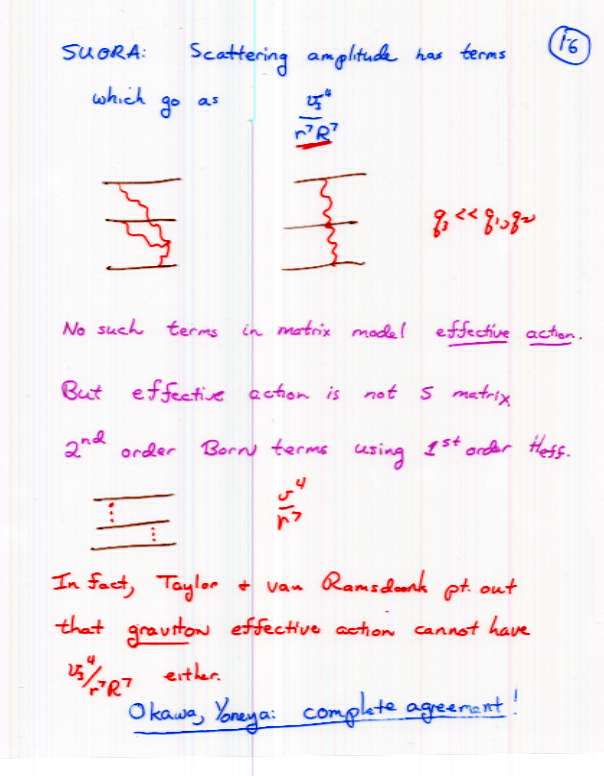 16
SUGRA: Scattering amplitude has terms
which go as v₃⁴/r⁷R⁷
q₃ << q₁,q₂
No such terms in matrix model effective action.
But effective action is not S matrix
2nd order Born terms using 1st order Heff.
v⁴/r⁷
In fact, Taylor + van Ramsdonk pt. out
that graviton effective action cannot have
v₃⁴/r⁷R⁷ either.
Okawa, Yoneya: complete agreement!